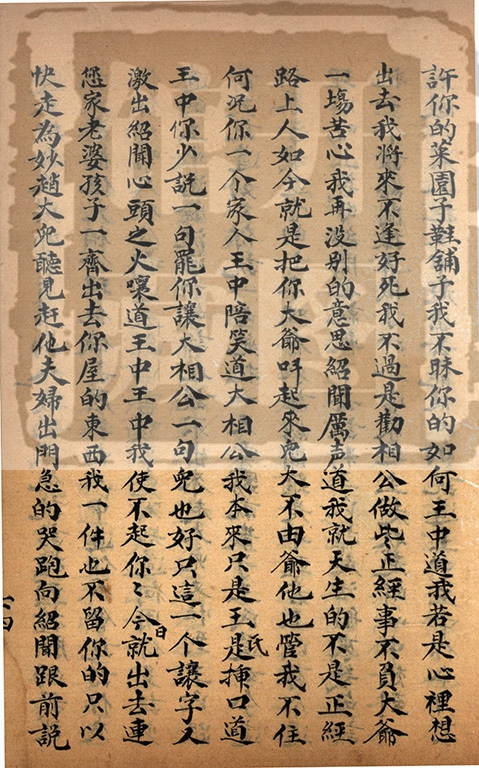 許你的菜園子鞋舖子我不昧你的如何王中道我若是心裡想
出去我將來不逢好死我不過是勸相公做些正經事不負大爺
一塲苦心我再沒别的意思紹聞厲声道我就天生的不是正經
路上人如今就是把你大爺呌起來兒大不由爺他也管我不住
何况你一个家人王中陪笑道大相公我本來只是王氏是揷口道
王中你少説一句罷你讓大相公一句兒也好只這一个讓字又
激出紹聞心頭之火嚷道王中王中我使不起你你今日就出去連
您家老婆孩子一齊出去你屋的東西我一件也不留你的只以
快走為妙趙大兒聽見赶他夫婦出門急的哭跑向紹聞跟前説